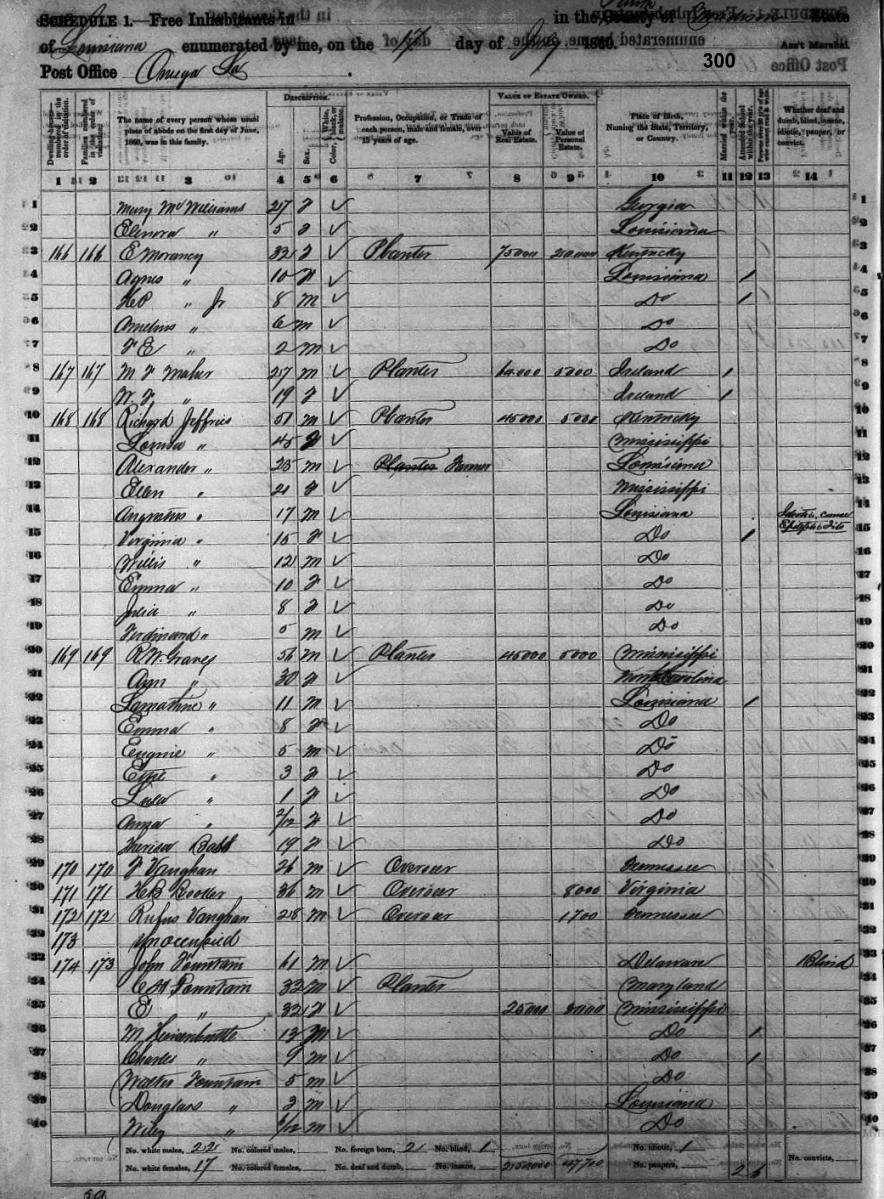 SCHEDULE 1.—Free Inhabitants in in the County of Madison State
of Louisiana enumerated by me, on the 17 day of July 1860. Ass't Marshal
Post Office Omega La 300
DESCRIPTION. VALUE OF ESTATE OWNED.
Dwelling-houses—numbered in the order of visitation. Families numbered in the order of visitation. The name of every person whose usual place of abode on the first day of June, 1860, was in this family. Age. Sex. Color, White, black, or mulatto. Profession, Occupation, or Trade of each person, male and female, over 15 years of age. Value of Real Estate. Value of Personal Estate. Place of Birth, Naming the State, Territory, or Country. Married within the year. Attended School within the year. Whether deaf and dumb, blind, insane, idiotic, pauper, or convict.
1 2 3 4 5 6 7 8 9 10 11 12 13 14
1 Mary McWilliams 27 f ✓ Georgia 1
2 Elenora " 5 f ✓ Louisiana 2
3 166 166 E Morancy 32 f ✓ Planter 75000 210.000 Kentucky 3
4 Agnes " 10 f ✓ Louisiana / 4
5 HP " Jr 8 m ✓ Do / 5
6 " 6 m ✓ Do 6
7 F E " 2 m ✓ Do 7
8 167 167 M F Maher 27 m ✓ Planter 5000 Ireland / 8
9 " 19 f ✓ Ireland / 9
10 168 168 Richard Jeffries 51 m ✓ Planter 45000 5000 Kentucky 10
11 " 45 f ✓ Mississippi 11
12 Alexander " 23 m ✓ Planter Farmer Louisiana 12
13 Ellen " 21 f ✓ Mississippi 13
14 " 17 m ✓ Louisiana Idiotic, cause Epileptic Fits 14
15 Virginia " 15 f ✓ Do / 15
16 Willis " 12 m ✓ Do 16
17 Emma " 10 f ✓ Do 17
18 Julia " 8 f ✓ Do 18
19 Ferdinand " 5 m ✓ Do 19
20 169 169 R W Graves 56 m ✓ Planter 45000 5000 Mississippi 20
21 Ann " 30 f ✓ North Carolina 21
22 Lamartine " 11 m ✓ Louisiana / 22
23 Emma " 8 f ✓ Do 23
24 Eugnie " 5 m ✓ Do 24
25 Effie " 3 f ✓ Do 25
26 Lula " 1 f ✓ Do 26
27 " 2/12 f ✓ Do 27
28 Theresa 19 f ✓ Do 28
29 170 170 F Vaughan 26 m ✓ Overseer Tennessee 29
30 171 171 HB Booker 36 m ✓ Overseer 8000 Virginia 30
31 172 172 Rufus Vaughan 28 m ✓ Overseer 1700 Tennessee 31
32 173 Unoccupied 32
33 174 173 John Fountain 61 m ✓ Delaware Blind 33
34 Fountain 32 m ✓ Planter Maryland 34
35 E " 32 f ✓ 25000 Mississippi 35
36 M 13 m ✓ Do / 36
37 Charles " 9 m ✓ Do / 37
38 Walter Fountain 5 m ✓ Do 38
39 Douglass " 3 m ✓ Louisiana 39
40 Wiley " m ✓ Do 40
No. white males, 22 No. colored males, No. foreign born, 2 No. blind, 1 No. idiotic, 1 No. convicts,
No. white females, 17 No. colored females, No. deaf and dumb, No. insane, 47700 No. paupers, 2 6